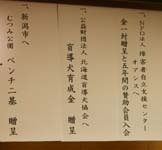 一、NPO法人 障害者自立支援センター
オアシスへ
金一封贈呈と五年間の賛助会員入会
一、公益財団法人 北海道盲導犬協会へ
盲導犬育成金 贈呈
一、新潟市へ
むつみ公園 ベンチ二基 贈呈